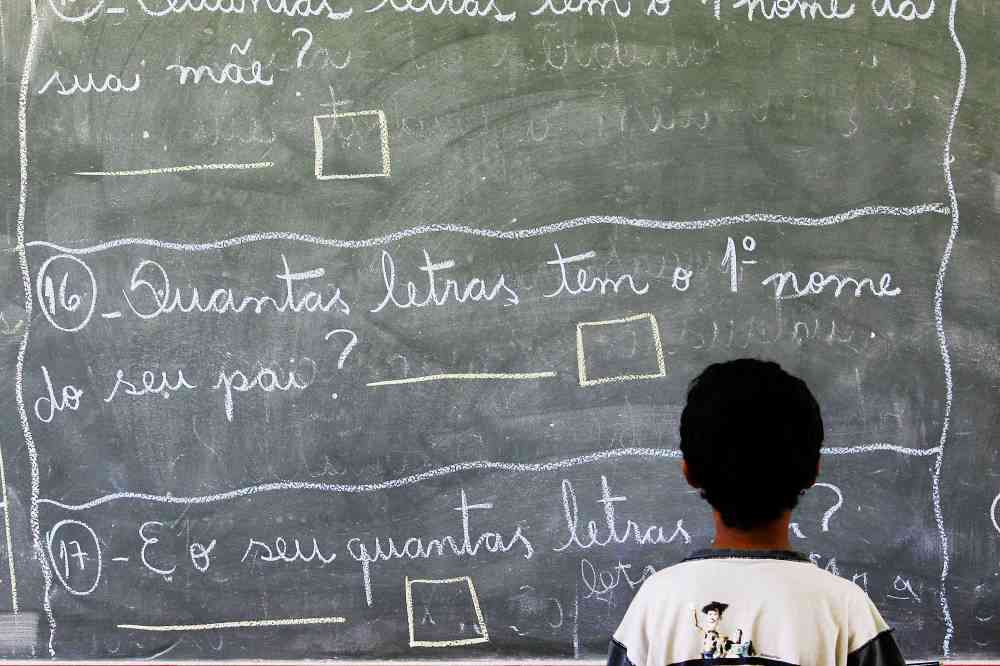 - Quantas letras tem o 1º nome da
sua mãe?
16 - Quantas letras tem o 1º nome
do seu pai?
17 - E o seu quantas letras ?